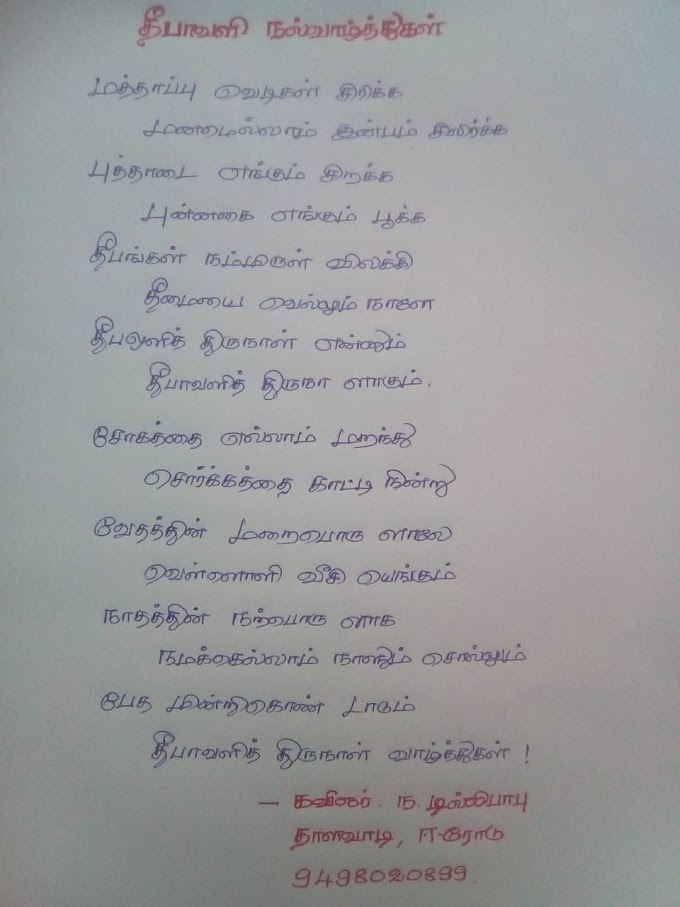 தீபாவளி நல்வாழ்த்துகள்
மத்தாப்பு வெடிகள் சிரிக்க
மனமெல்லாம் இன்பம் சிலிர்க்க
புத்தாடை எங்கும் சிறக்க
புன்னகை எங்கும் பூக்க
தீபங்கள் நம்மிருள் விலக்கி
தீமையை வெல்லும் நாளே
தீபஒளித் திருநாள் என்னும்
தீபாவளித் திருநா ளாகும்.
சோகத்தை எல்லாம் மறந்து
சொர்க்கத்தை காட்டி நின்று
வேதத்தின் மறைபொரு ளாலே
வெள்ளொளி வீசி யெங்கும்
நாதத்தின் நற்பொரு ளாக
நமக்கெல்லாம் நாளும் சொல்லும்
பேத மின்றிகொண் டாடும்
தீபாவளித் திருநாள் வாழ்த்துகள் !
– கவிஞர். ந. டில்லிபாபு
தாளவாடி, ஈரோடு
9498020899.